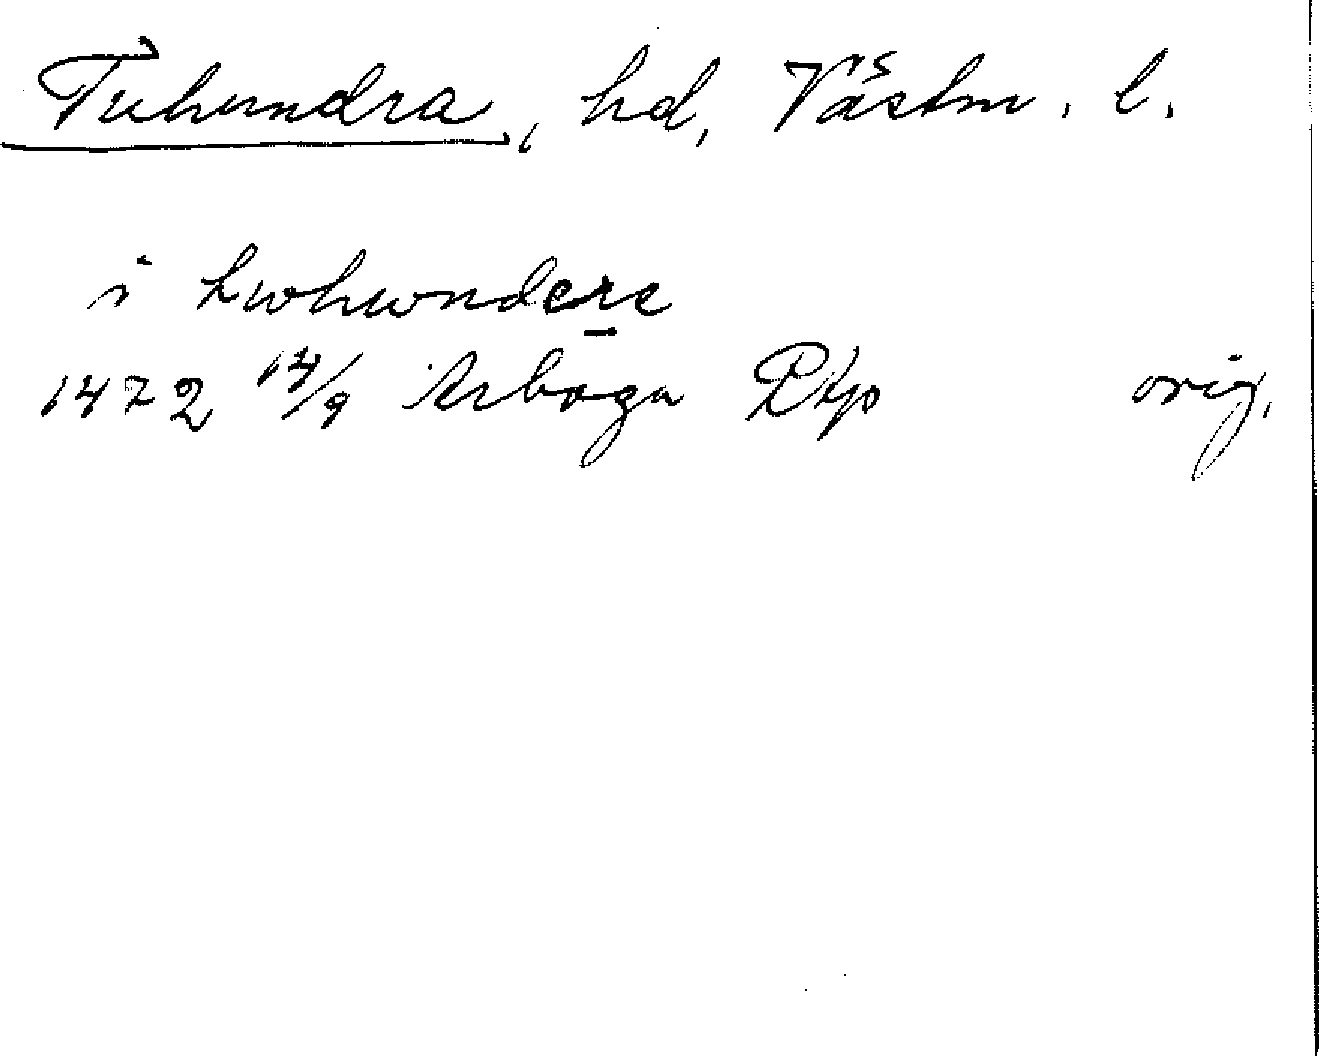 Tuhundra, hd, Västm. l.
i twhwndere
1472 14/9 Arboga RAp orig.